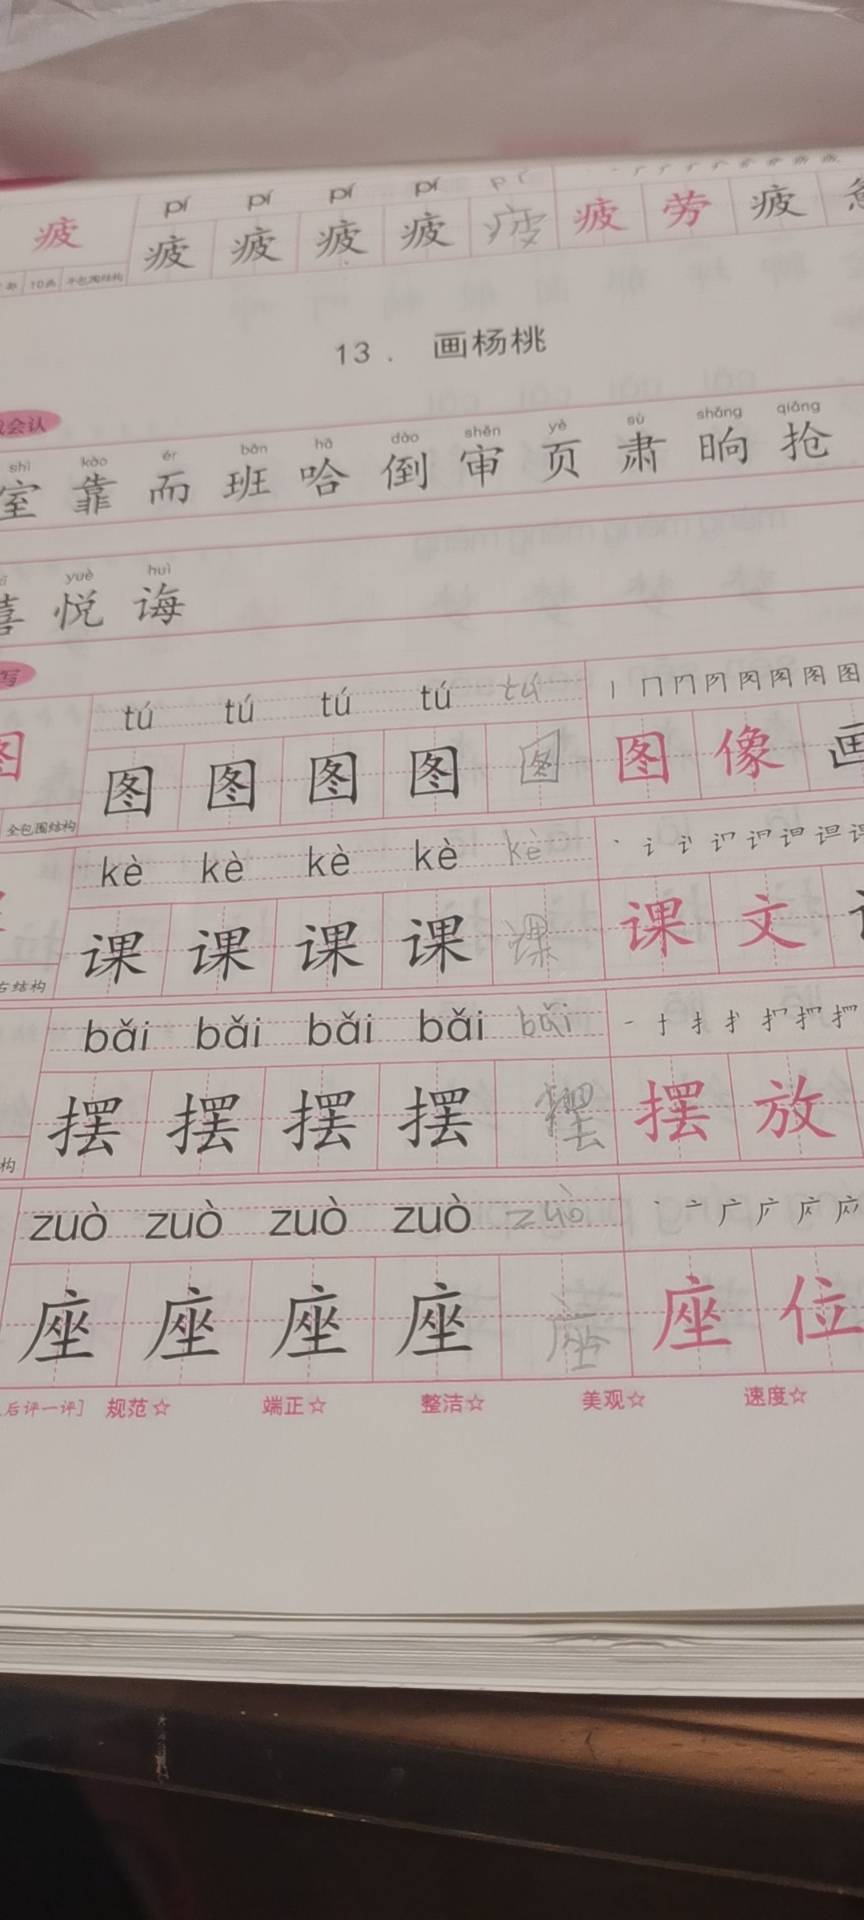 pí pí pí pí pí
疲 疲 疲 疲 疲 疲 疲 劳 疲
10画 半包围结构
13. 画杨桃
会认
shì kào ér bān hā dǎo shěn yè sù shǎng qiǎng
室 靠 而 班 哈 倒 审 页 肃 晌 抢
yuè huì
悦 诲
写
tú tú tú tú tú
图 图 图 图 图 图 图 像 画
全包围结构
kè kè kè kè kè
课 课 课 课 课 课 文
右结构
bǎi bǎi bǎi bǎi bǎi
摆 摆 摆 摆 摆 摆 放
构
zuò zuò zuò zuò zuò
座 座 座 座 座 座 位
后评一评] 规范☆ 端正☆ 整洁☆ 美观☆ 速度☆